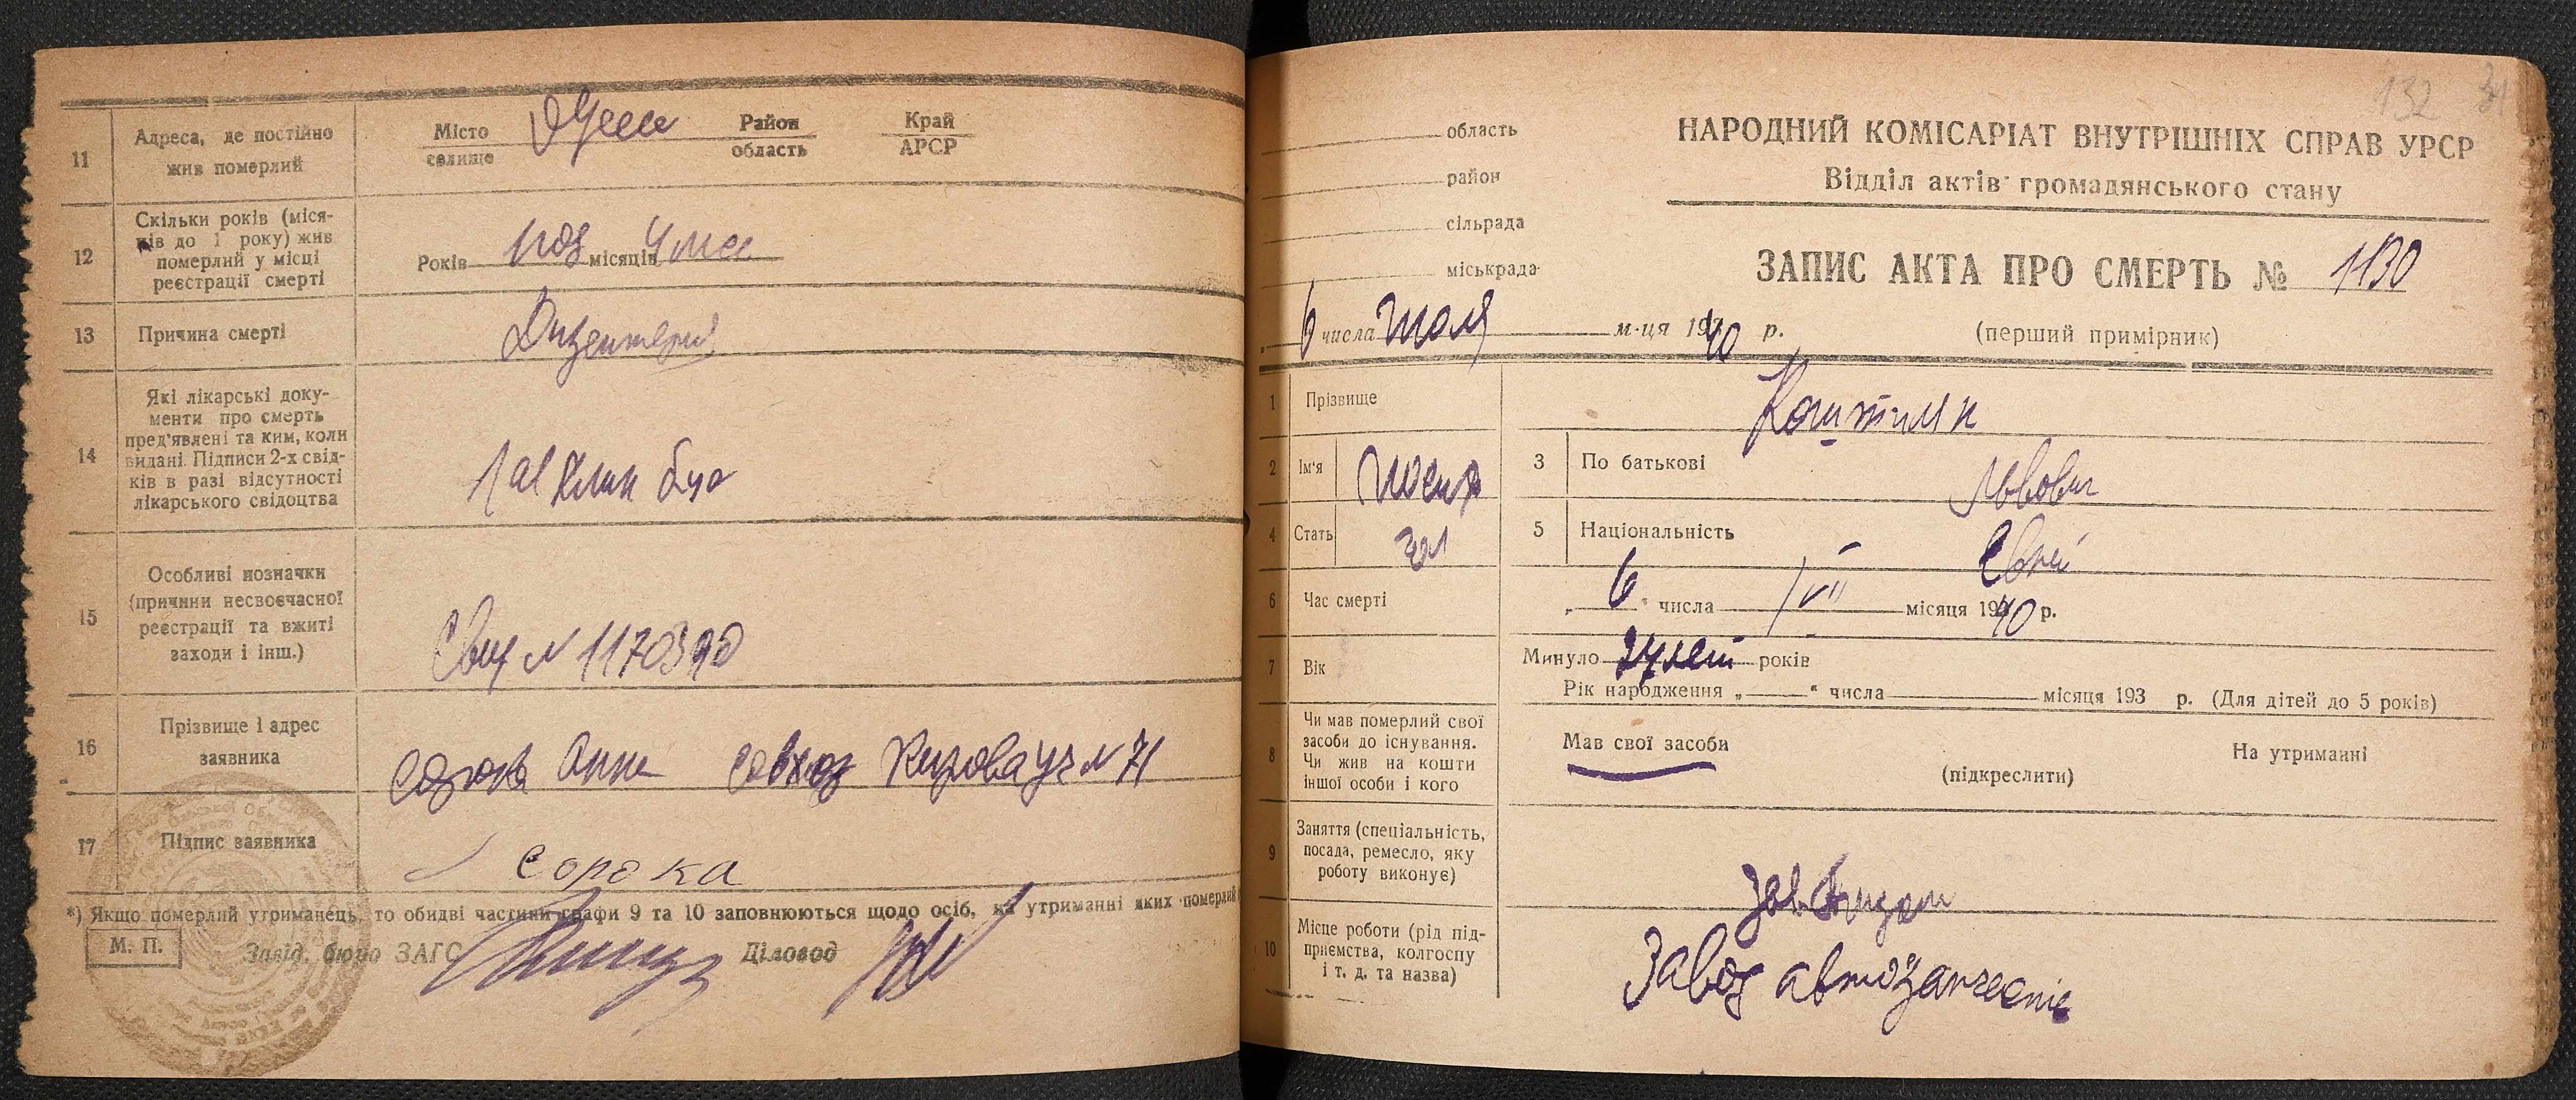 11
Адреса, де постійно
жив померлий
Місто
селище
Одесса
Район
область
Край
АРСР
12
Скільки років (міся-
ців до 1 року) жив
померлий у місці
реєстрації смерті
Років місяців 4 мес
13
Причина смерті
Дизентерия
14
Які лікарські доку-
менти про смерть
пред'явлені та ким, коли
видані. Підписи 2-х свід-
ків в разі відсутності
лікарського свідоцтва
15
Особливі позначки
(причини несвоєчасної
реєстрації та вжиті
заходи і інш.)
16
Прізвище і адрес
заявника
Сорока Анна совхоз Кирова уч № 71
17
Підпис заявника
Сорока
*) Якщо померлий утриманець, то обидві частини графи 9 та 10 заповнюються щодо осіб, на утриманні яких померлий
М. П.
Завід. бюро ЗАГС
Діловод
132
область
район
сільрада
міськрада
6 числа июля м-ця 1940 р.
НАРОДНИЙ КОМІСАРІАТ ВНУТРІШНІХ СПРАВ УРСР
Відділ актів громадянського стану
ЗАПИС АКТА ПРО СМЕРТЬ № 1130
(перший примірник)
1
Прізвище
2
Ім'я
3
По батькові
Львович
4
Стать
5
Національність
Еврей
6
Час смерті
„ 6 " числа VII місяця 1940 р.
7
Вік
Минуло лет років
Рік народження „ " числа місяця 193 р. (Для дітей до 5 років)
8
Чи мав померлий свої
засоби до існування.
Чи жив на кошти
іншої особи і кого
Мав свої засоби
На утриманні
(підкреслити)
9
Заняття (спеціальність,
посада, ремесло, яку
роботу виконує)
10
Місце роботи (рід під-
приємства, колгоспу
і т. д. та назва)
Завод автозапчасти